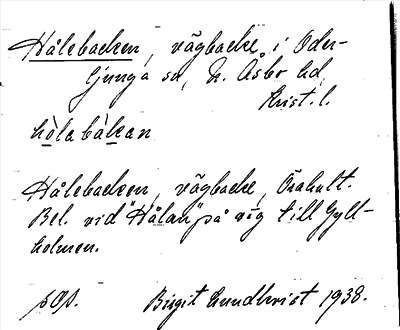 Hålebacken, vägbacke i Oder-
ljunga sn, N. Åsbo hd,
Krist. l.
hòlabàkan
Hålebacken, vägbacke, Örahult.
Bel. vid "Hålan" på väg till Gyll-
holmen.
Birgit Lundkvist 1938.